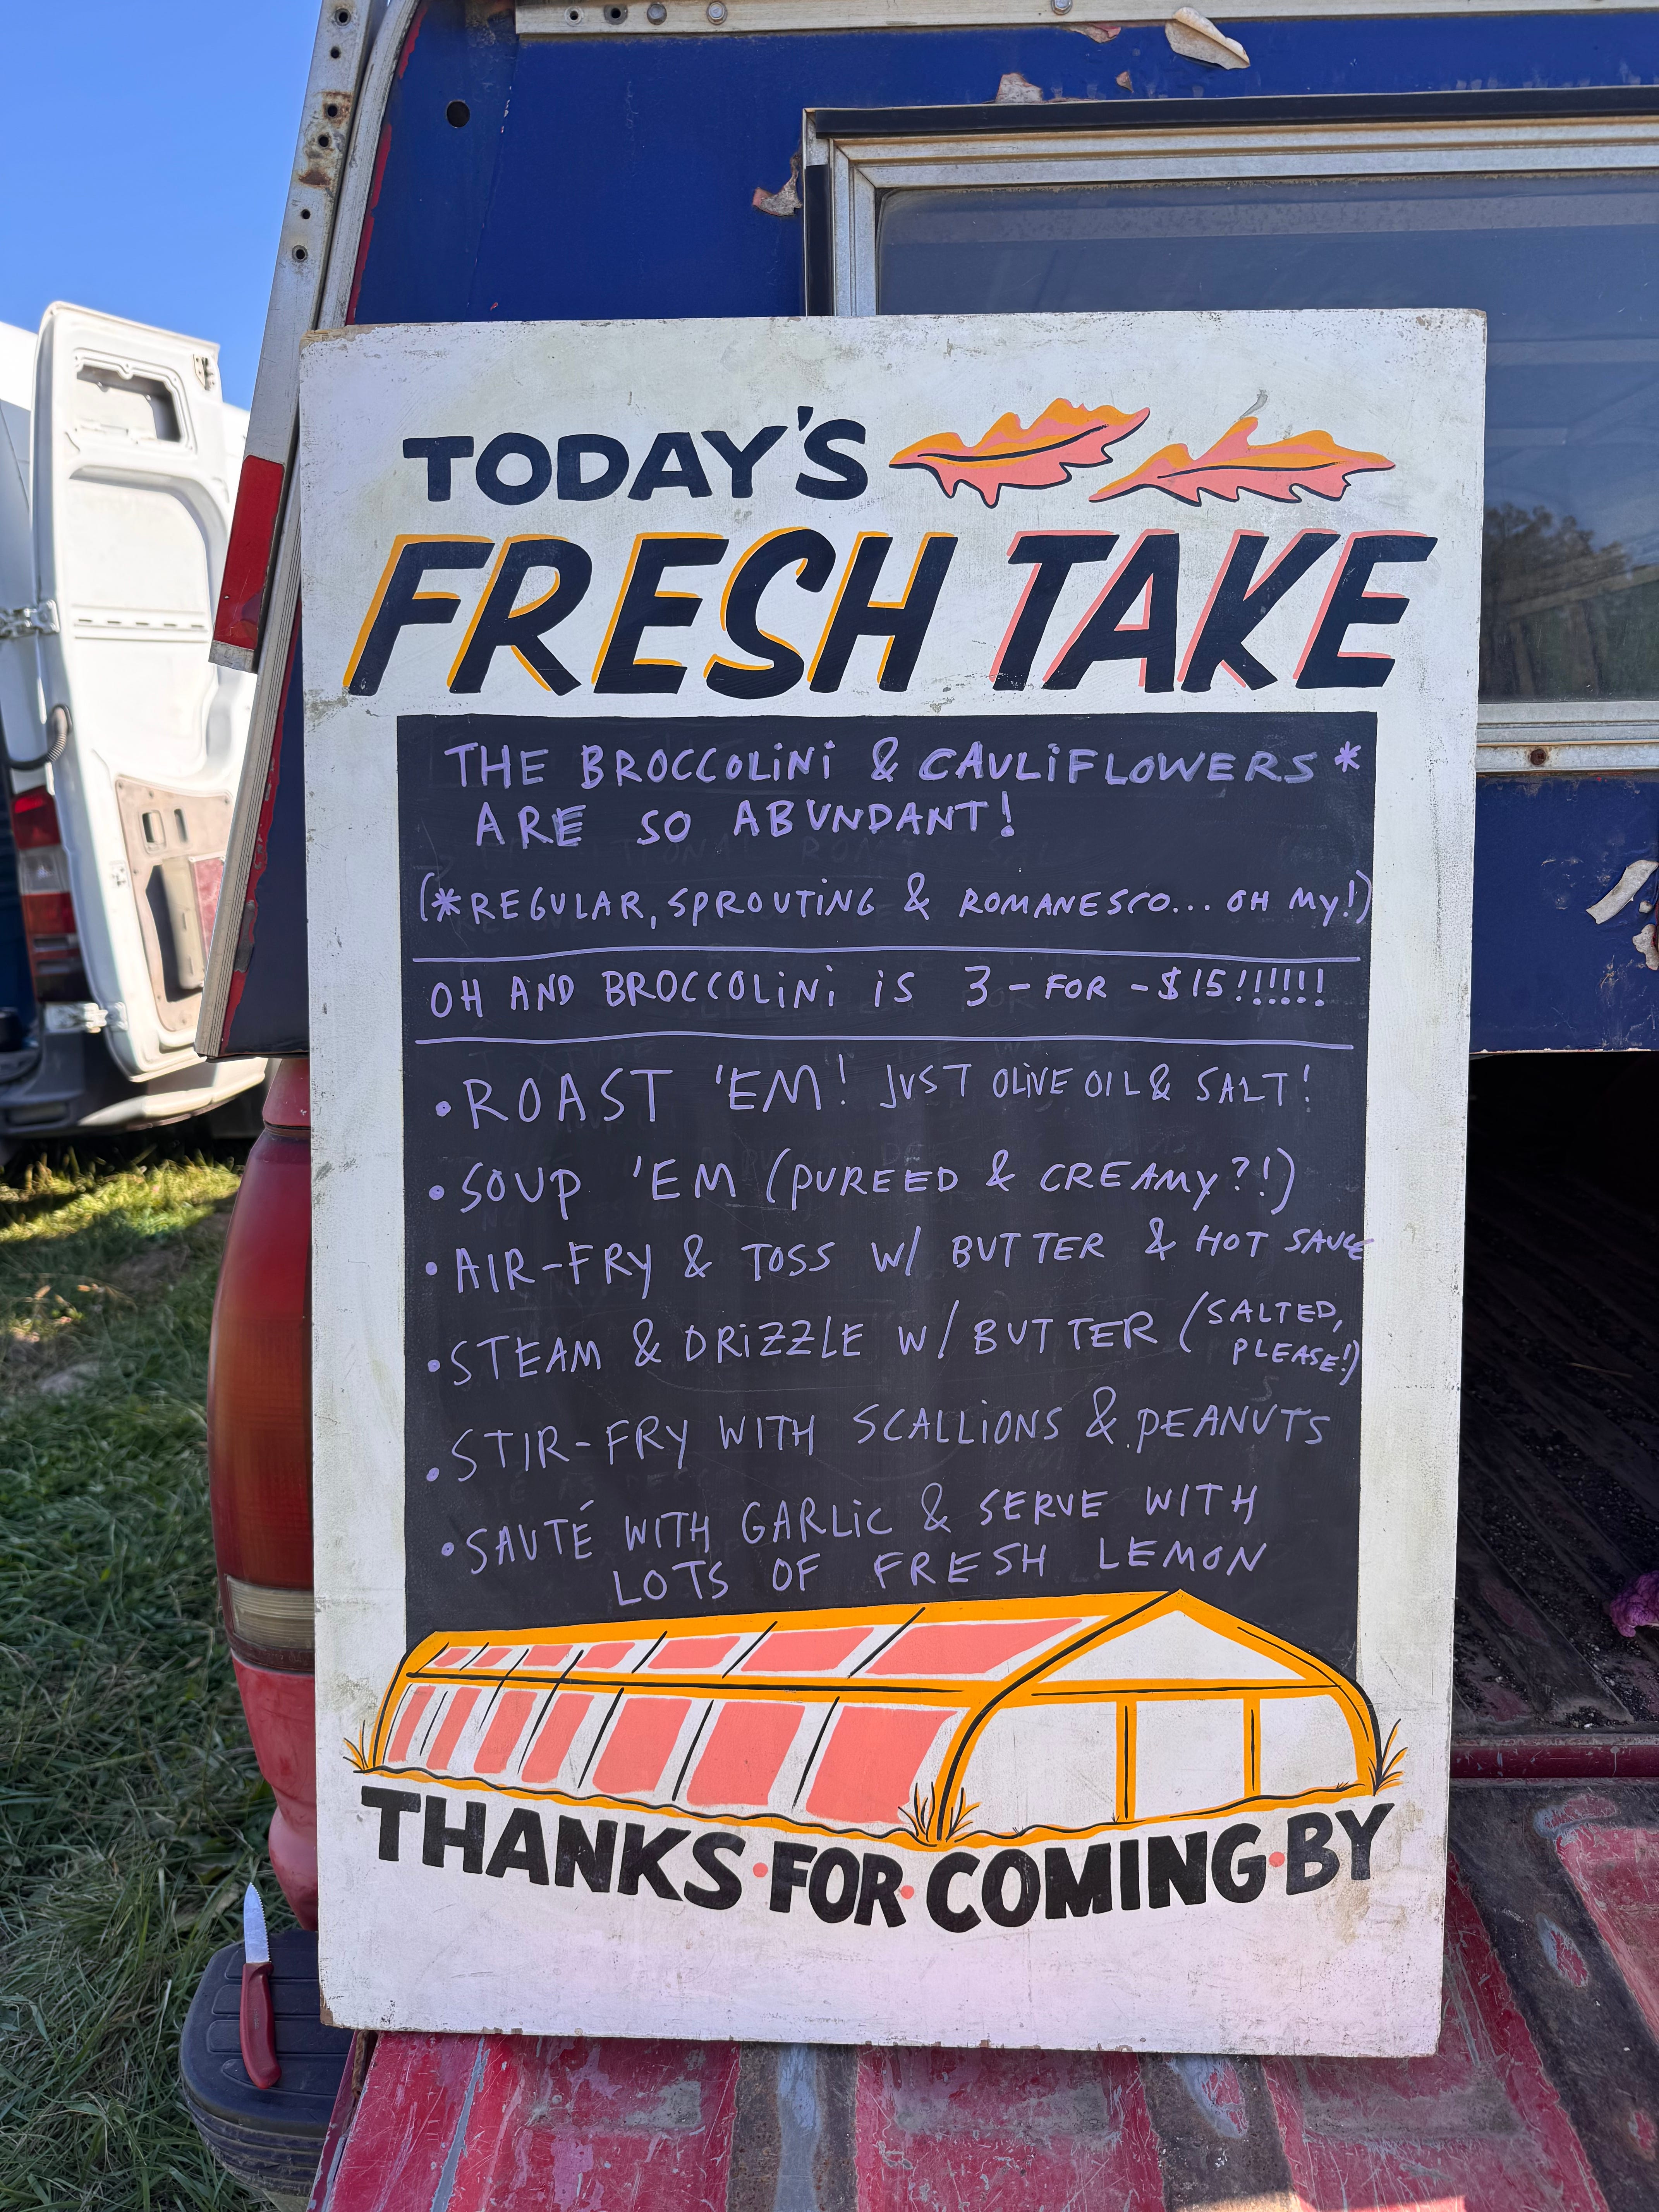 TODAY'S
FRESH TAKE
THE BROCCOLINI & CAULIFLOWERS*
ARE SO ABUNDANT!
(*REGULAR, SPROUTING & ROMANESCO... OH MY!)
OH AND BROCCOLINI IS 3-FOR-$15!!!!!!
• ROAST 'EM! JUST OLIVE OIL & SALT!
• SOUP 'EM (PUREED & CREAMY?!)
• AIR-FRY & TOSS W/ BUTTER & HOT SAUCE
• STEAM & DRIZZLE W/ BUTTER (SALTED,
PLEASE!)
• STIR-FRY WITH SCALLIONS & PEANUTS
• SAUTÉ WITH GARLIC & SERVE WITH
LOTS OF FRESH LEMON
THANKS·FOR·COMING·BY